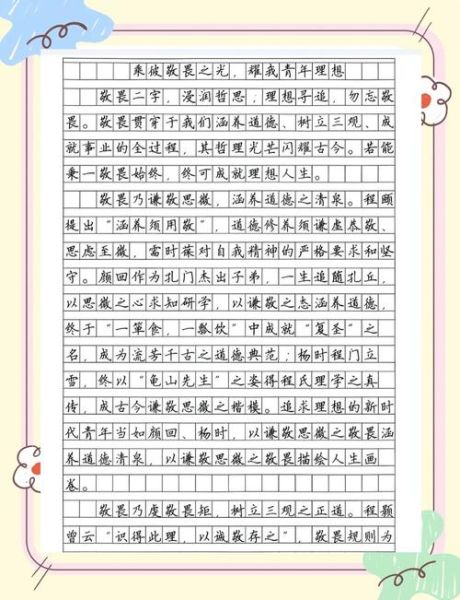 乘彼敬畏之光，耀我青年理想
敬畏二字，浸润哲思；理想寻追，勿忘敬
畏。敬畏贯穿于我们涵养道德、树立三观、成
就事业的全过程，其哲理光芒闪耀古今。若能
秉一敬畏始终，终可成就理想人生。
敬畏乃谦敬思微，涵养道德之清泉。程颐
提出“涵养须用敬”，道德修养须谦虚恭敬、
思虑至微，需时葆对自我精神的严格要求和坚
守。颜回作为孔门杰出子弟，一生追随孔丘，
以思微之心求知研学，以谦敬之态涵养道德，
终于“一箪食，一瓢饮”中成就“复圣”之
名，成为流芳千古之道德典范；杨时程门立
雪，终以“龟山先生”之姿得程氏理学之真
传，成古今谦敬思微之楷模。追求理想的新时
代青年当如颜回、杨时，以谦敬思微之敬畏涵
养道德清泉，以谦敬思微之敬畏描绘人生画
卷。
敬畏乃虔敬畏矩，树立三观之正道。程颢
曾云“识得此理，以诚敬存之”，敬畏规则为